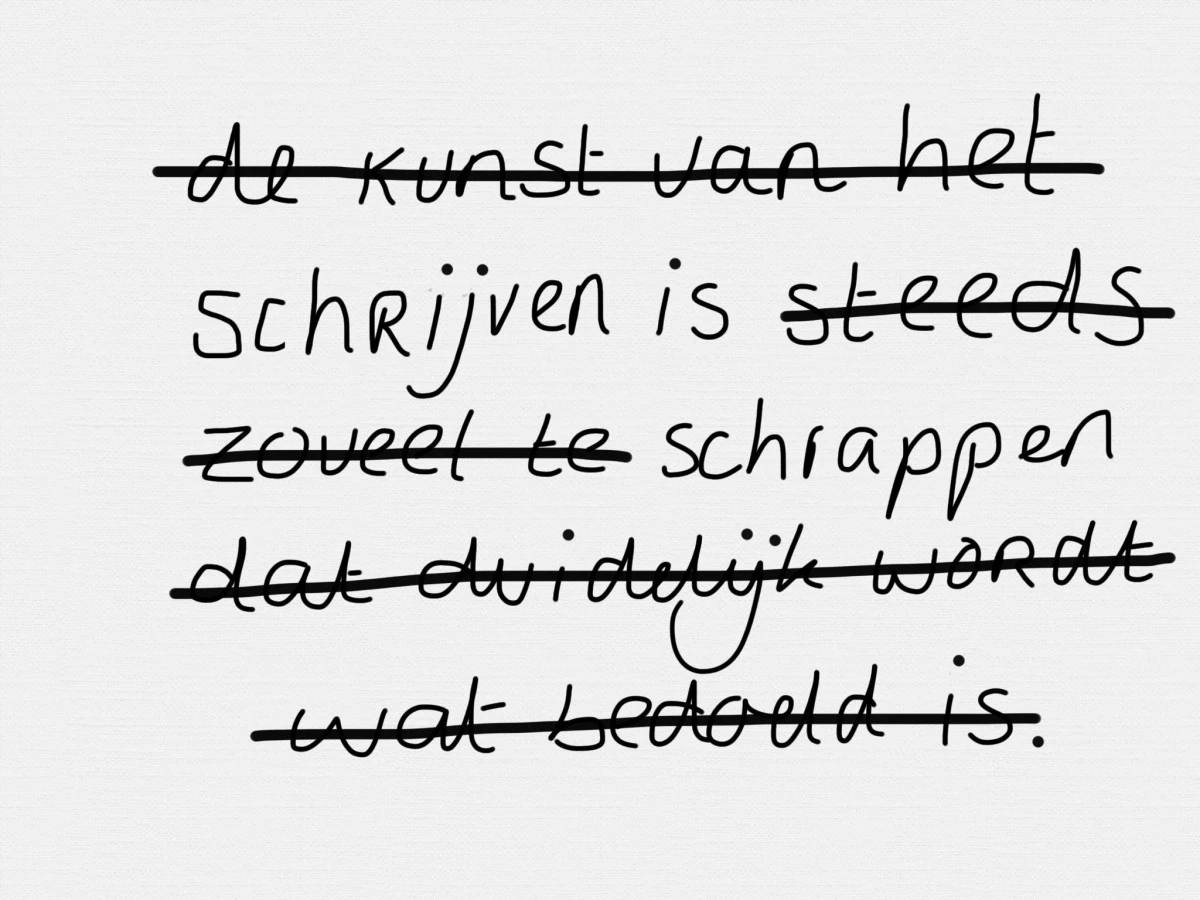 de kunst van het
schrijven is steeds
zoveel te schrappen
dat duidelijk wordt
wat bedoeld is.